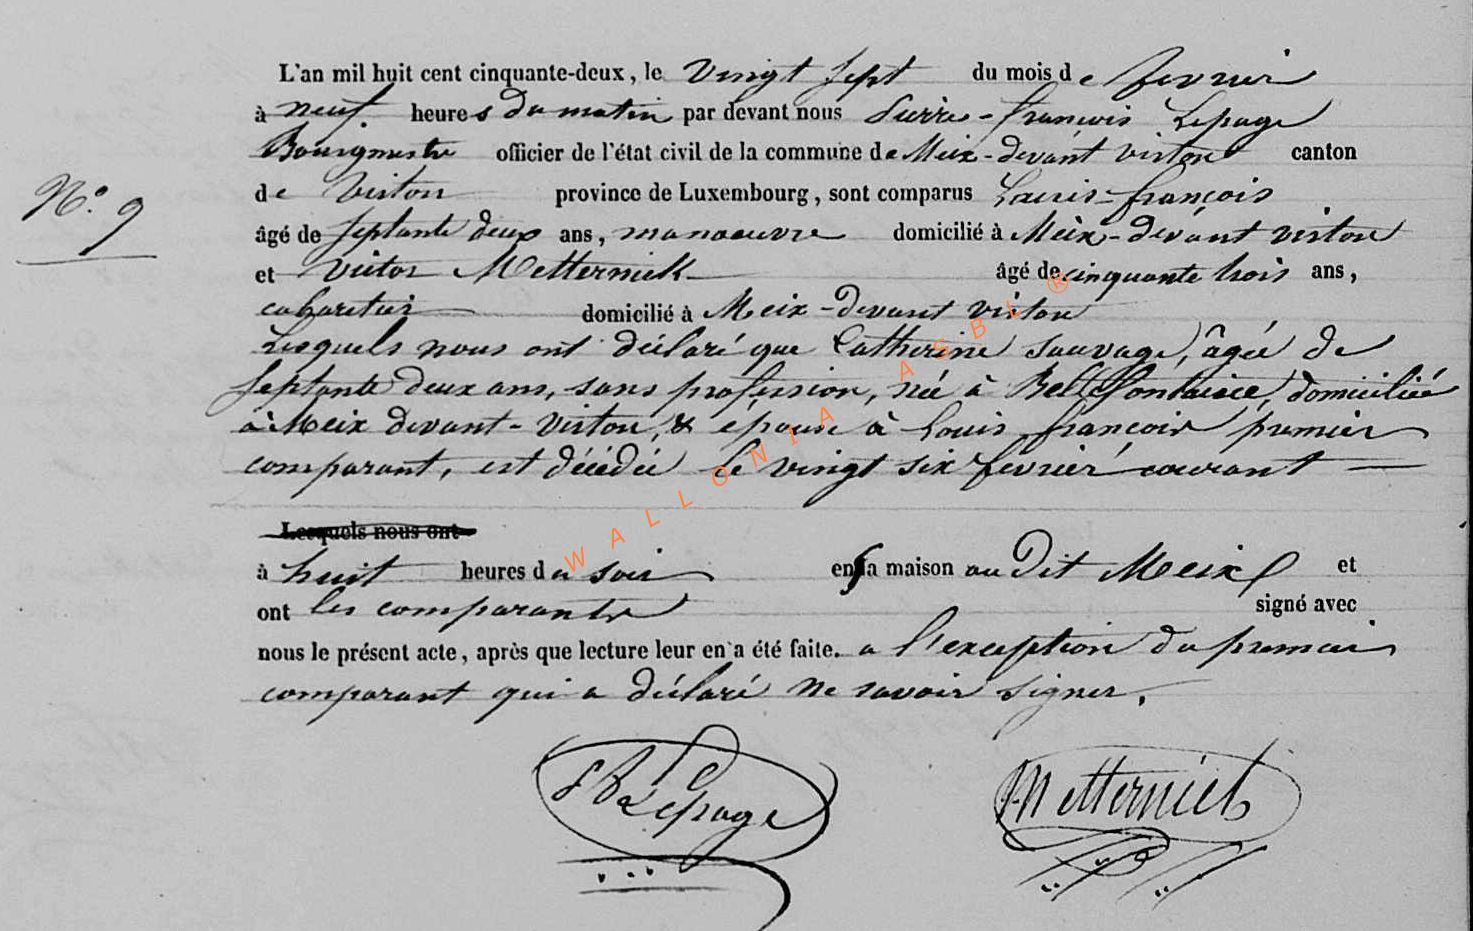 L'an mil huit cent cinquante-deux, le vingt sept du mois de fevrier
à neuf heures du matin par devant nous Pierre-françois Lepage
Bourgmestre officier de l'état civil de la commune de Meix-devant virton canton
N.º 9
de Virton province de Luxembourg, sont comparus Louis-françois
âgé de septante deux ans, manoeuvre domicilié à Meix-devant virton
et Victor Metternick âgé de cinquante trois ans,
cabaretier domicilié à Meix-devant virton
Lesquels nous ont déclaré que Catherine Sauvage, âgée de
septante deux ans, sans profession, née à Bellefontaine, domiciliée
à Meix devant-Virton, & épouse à Louis françois premier
comparant, est décédée le vingt six fevrier courant
Lesquels nous ont
à huit heures du soir en sa maison au dit Meix et
ont les comparants signé avec
nous le présent acte, après que lecture leur en a été faite. a l'exception du premier
comparant qui a déclaré ne savoir signer.
Lepage Metternick
WALLONIA ASBL ®